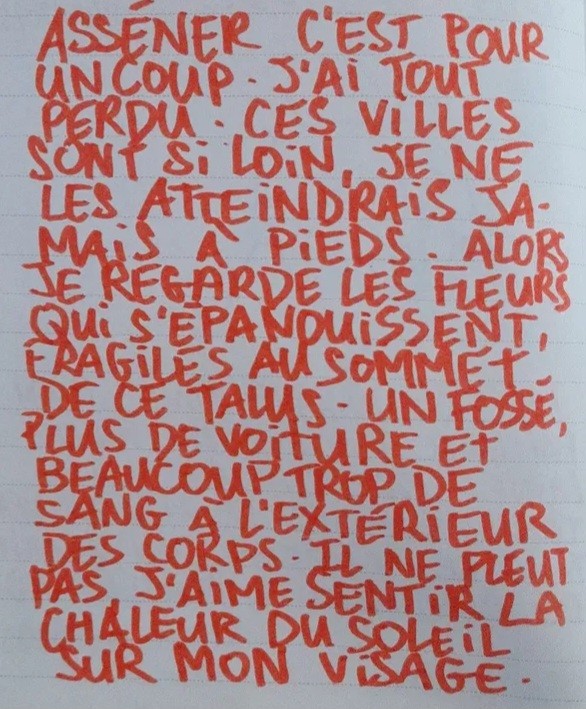 ASSÉNER C'EST POUR
UN COUP. J'AI TOUT
PERDU. CES VILLES
SONT SI LOIN, JE NE
LES ATTEINDRAIS JA-
MAIS À PIEDS. ALORS
JE REGARDE LES FLEURS
QUI S'ÉPANOUISSENT,
FRAGILES AU SOMMET
DE CE TALUS. UN FOSSÉ,
PLUS DE VOITURE ET
BEAUCOUP TROP DE
SANG À L'EXTÉRIEUR
DES CORPS. IL NE PLEUT
PAS. J'AIME SENTIR LA
CHALEUR DU SOLEIL
SUR MON VISAGE.